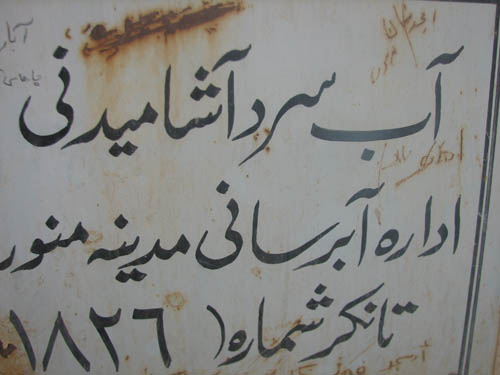 آب سرد آشامیدنی
اداره آبرسانی مدینه منور
تانکر شماره (١٨٢٦